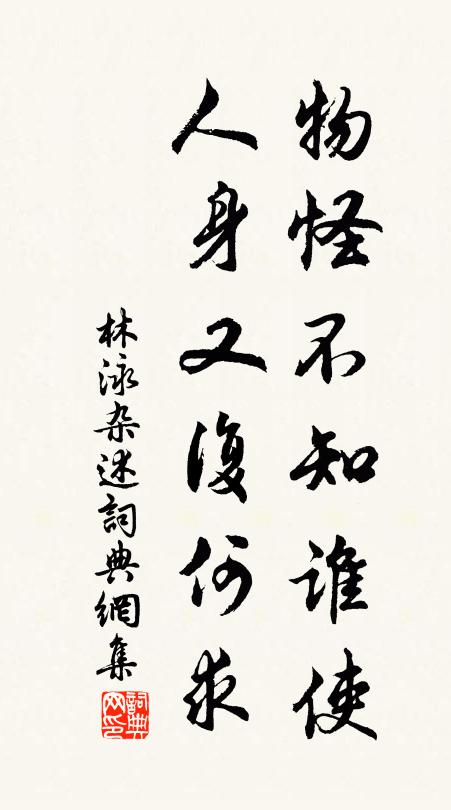 物怪不知谁使
人身又復何求
林泳杂述詞典網集
詞典网印